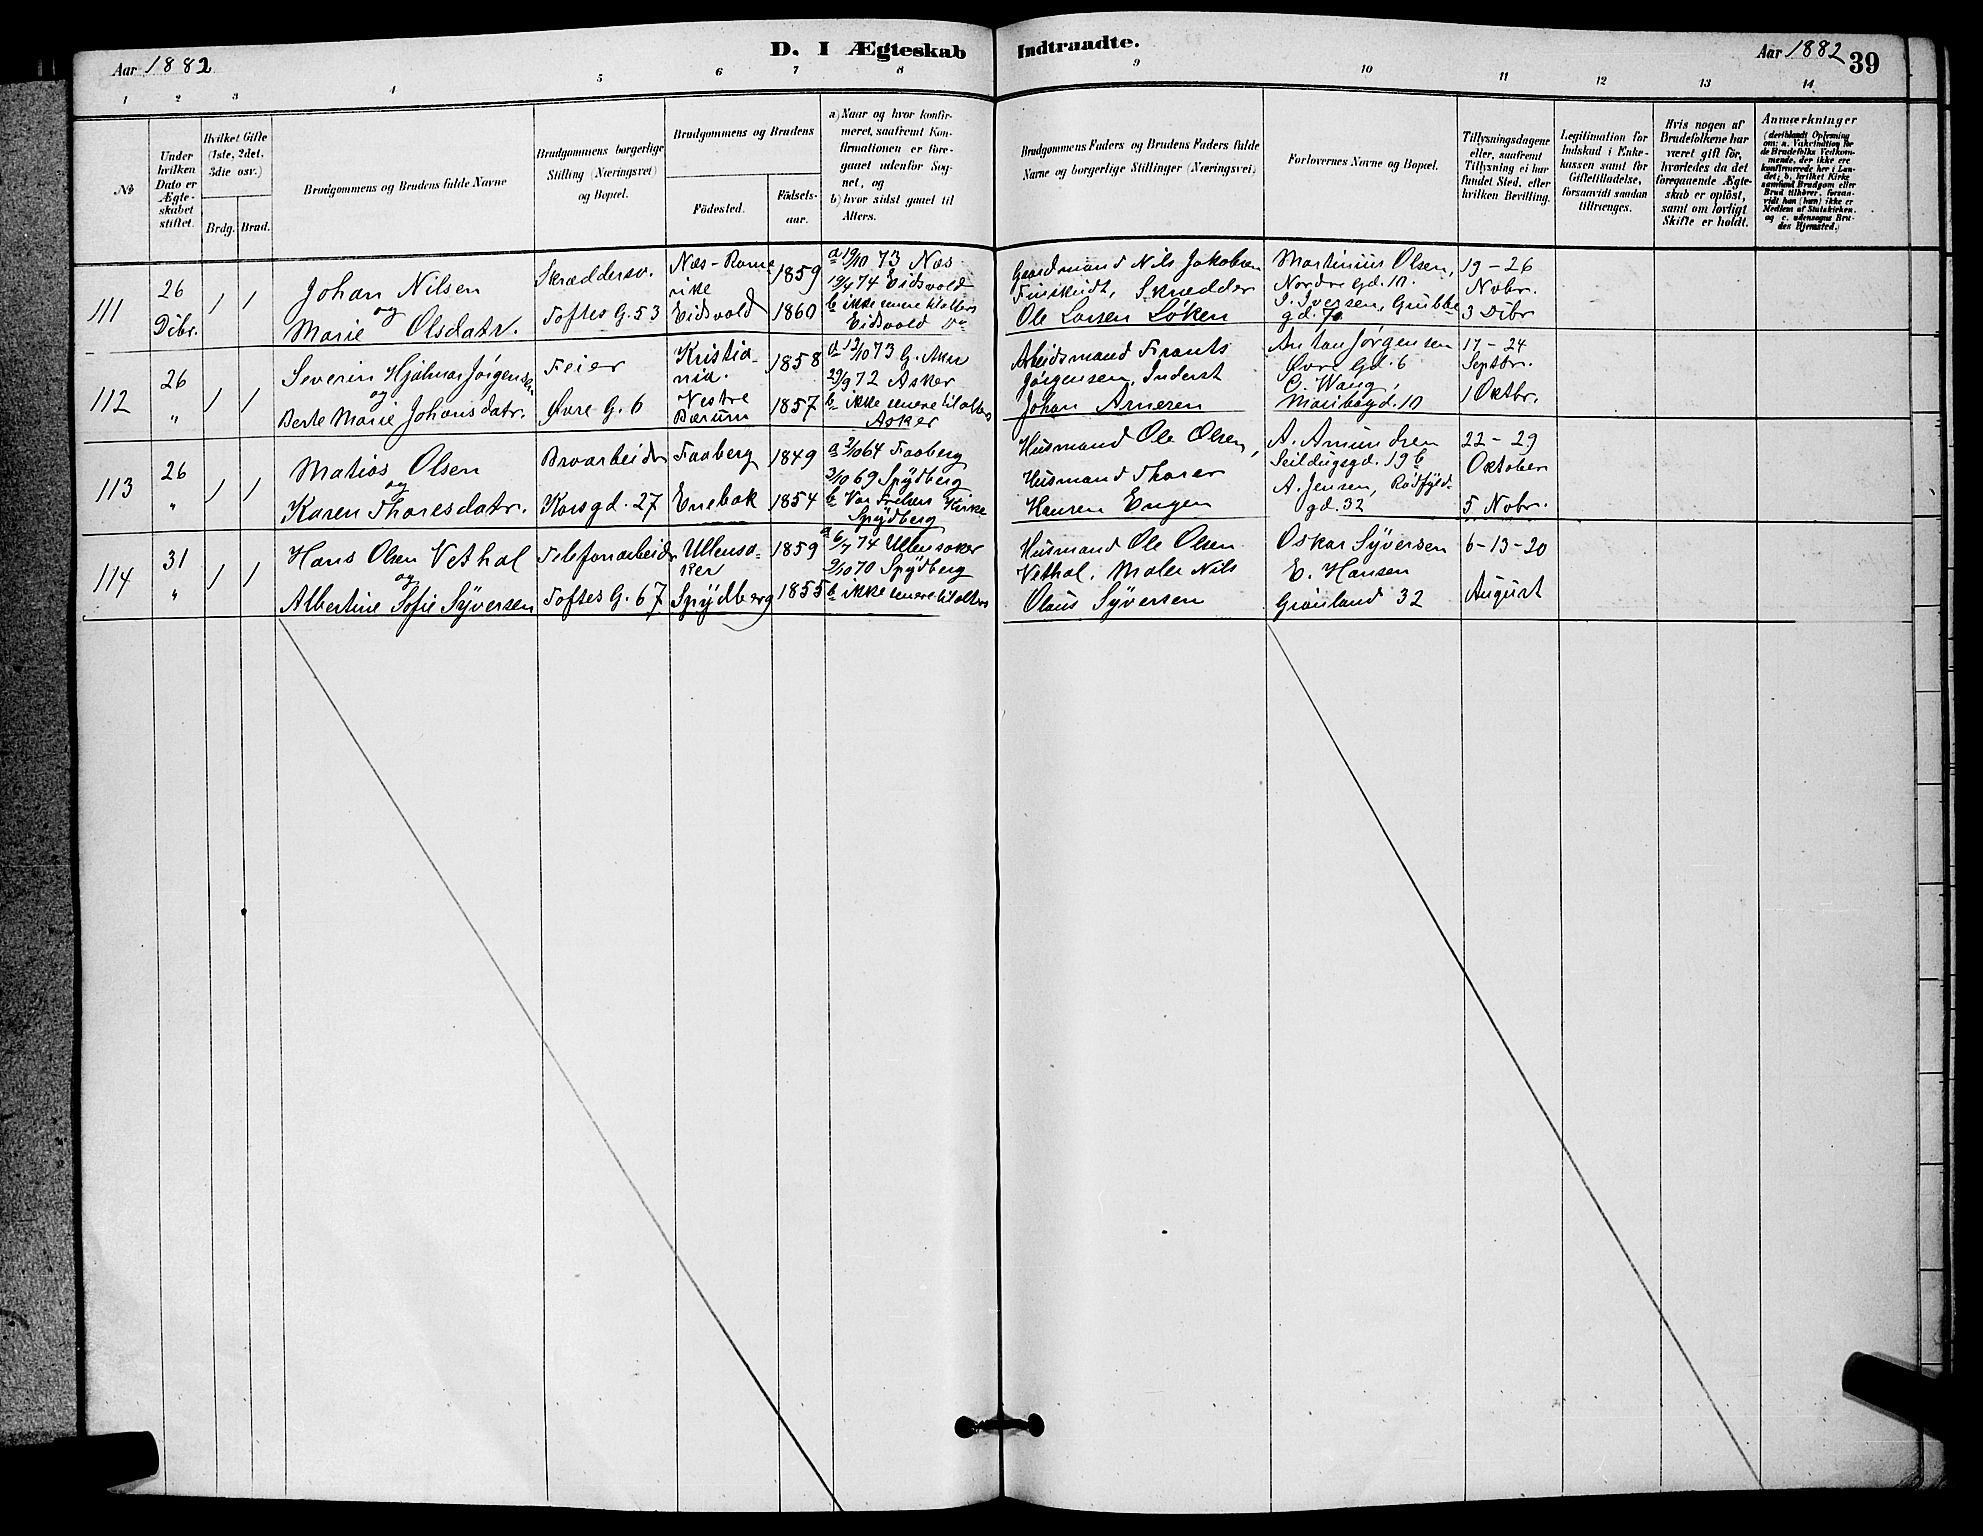 Aar 1882
D. I Ægteskab Indtraadte.
Aar 1882 39
1 2 3 4 5 6 7 8 9 10 11 12 13 14
No
Under hvilken Dato er Ægteskabet stiftet.
Hvilket Gifte (1ste, 2det, 3die osv.)
Brdg. Brud.
Brudgommens og Brudens fulde Navne
Brudgommens borgerlige Stilling (Næringsvei) og Bopæl.
Brudgommens og Brudens
Födested. Födselsaar.
a) Naar og hvor konfirmeret, saafremt Konfirmationen er foregaaet udenfor Sognet, og
b) hvor sidst gaaet til Alters.
Brudgommens Faders og Brudens Faders fulde Navne og borgerlige Stillinger (Næringsvei)
Forlovernes Navne og Bopæl.
Tillysningsdagene eller, saafremt Tillysning ei har fundet Sted, efter hvilken Bevilling.
Legitimation for Indskud i Enkekassen samt for Giftetilladelse, forsaavidt saadan tiltrænges.
Hvis nogen af Brudefolkene har været gift för, hvorledes da det foregaaende Ægteskab er oplöst, samt om lovligt Skifte er holdt.
Anmærkninger
(deriblandt Oplysning om: a. Vakcination for de Brudefolks Vedkommende, der ikke ere konfirmerede her i Landet; b. hvilket Kirkesamfund Brudgom eller Brud tilhörer, forsaavidt han (hun) ikke er Medlem af Statskirken, og c. udensogns Brudes Hjemsted.)
111
26 Dibr.
1 1
Johan Nilsen
og
Marie Olsdatr.
Skræddersv.
Toftes G. 53
Næs-Romerike 1859
Eidsvold 1860
a 19/10 73 Næs
19/4 74 Eidsvold
b ikke senere til alters
Eidsvold Do
Gaardmand Nils Jakobsen
Finskudt, Skrædder
Ole Larsen Løken
Martinius Olsen,
Nordre Gd. 10.
I. Iversen, Grubbe
gd. 70
19 - 26
Nobr.
3 Dibr
112
26 "
1 1
Severin Hjalmar Jørgensen
og
Berte Marie Johansdatr.
Feier
Øvre G. 6
Kristiania. 1858
Vestre Bærum 1857
a 12/10 73 G. Aker
29/9 72 Asker
b ikke senere til alters
Asker
Arbeidsmand Frants
Jørgensen, Inderst
Johan Arnesen
Anton Jørgensen
Øvre Gd. 6
C. Wang,
Maribogd. 10
17 - 24
Septbr.
1 Oktbr.
113
26 "
1 1
Matias Olsen
og
Karen Thoresdatr.
Broarbeider
Korsgd. 27
Faaberg 1849
Enebak 1854
a 2/10 64 Faaberg
3/10 69 Spydberg
b Vor Frelsers Kirke
Spydberg
Husmand Ole Olsen,
Husmand Thorer
Hansen Engen
A. Amundsen
Seildugsgd. 19 b
A. Jensen, Rødfyldgd. 32
22 - 29
Oktober
5 Nobr.
114
31 "
1 1
Hans Olsen Vethal
og
Albertine Sofie Syversen
Telefonarbeider
Toftes G. 67
Ullensaker 1859
Spydberg 1855
a 6/7 74 Ullensaker
9/10 70 Spydberg
b ikke senere til alters
Husmand Ole Olsen
Vethal, Maler Nils
Olaus Syversen
Oskar Syversen
E. Hansen
Grønland 32
6 - 13 - 20
August